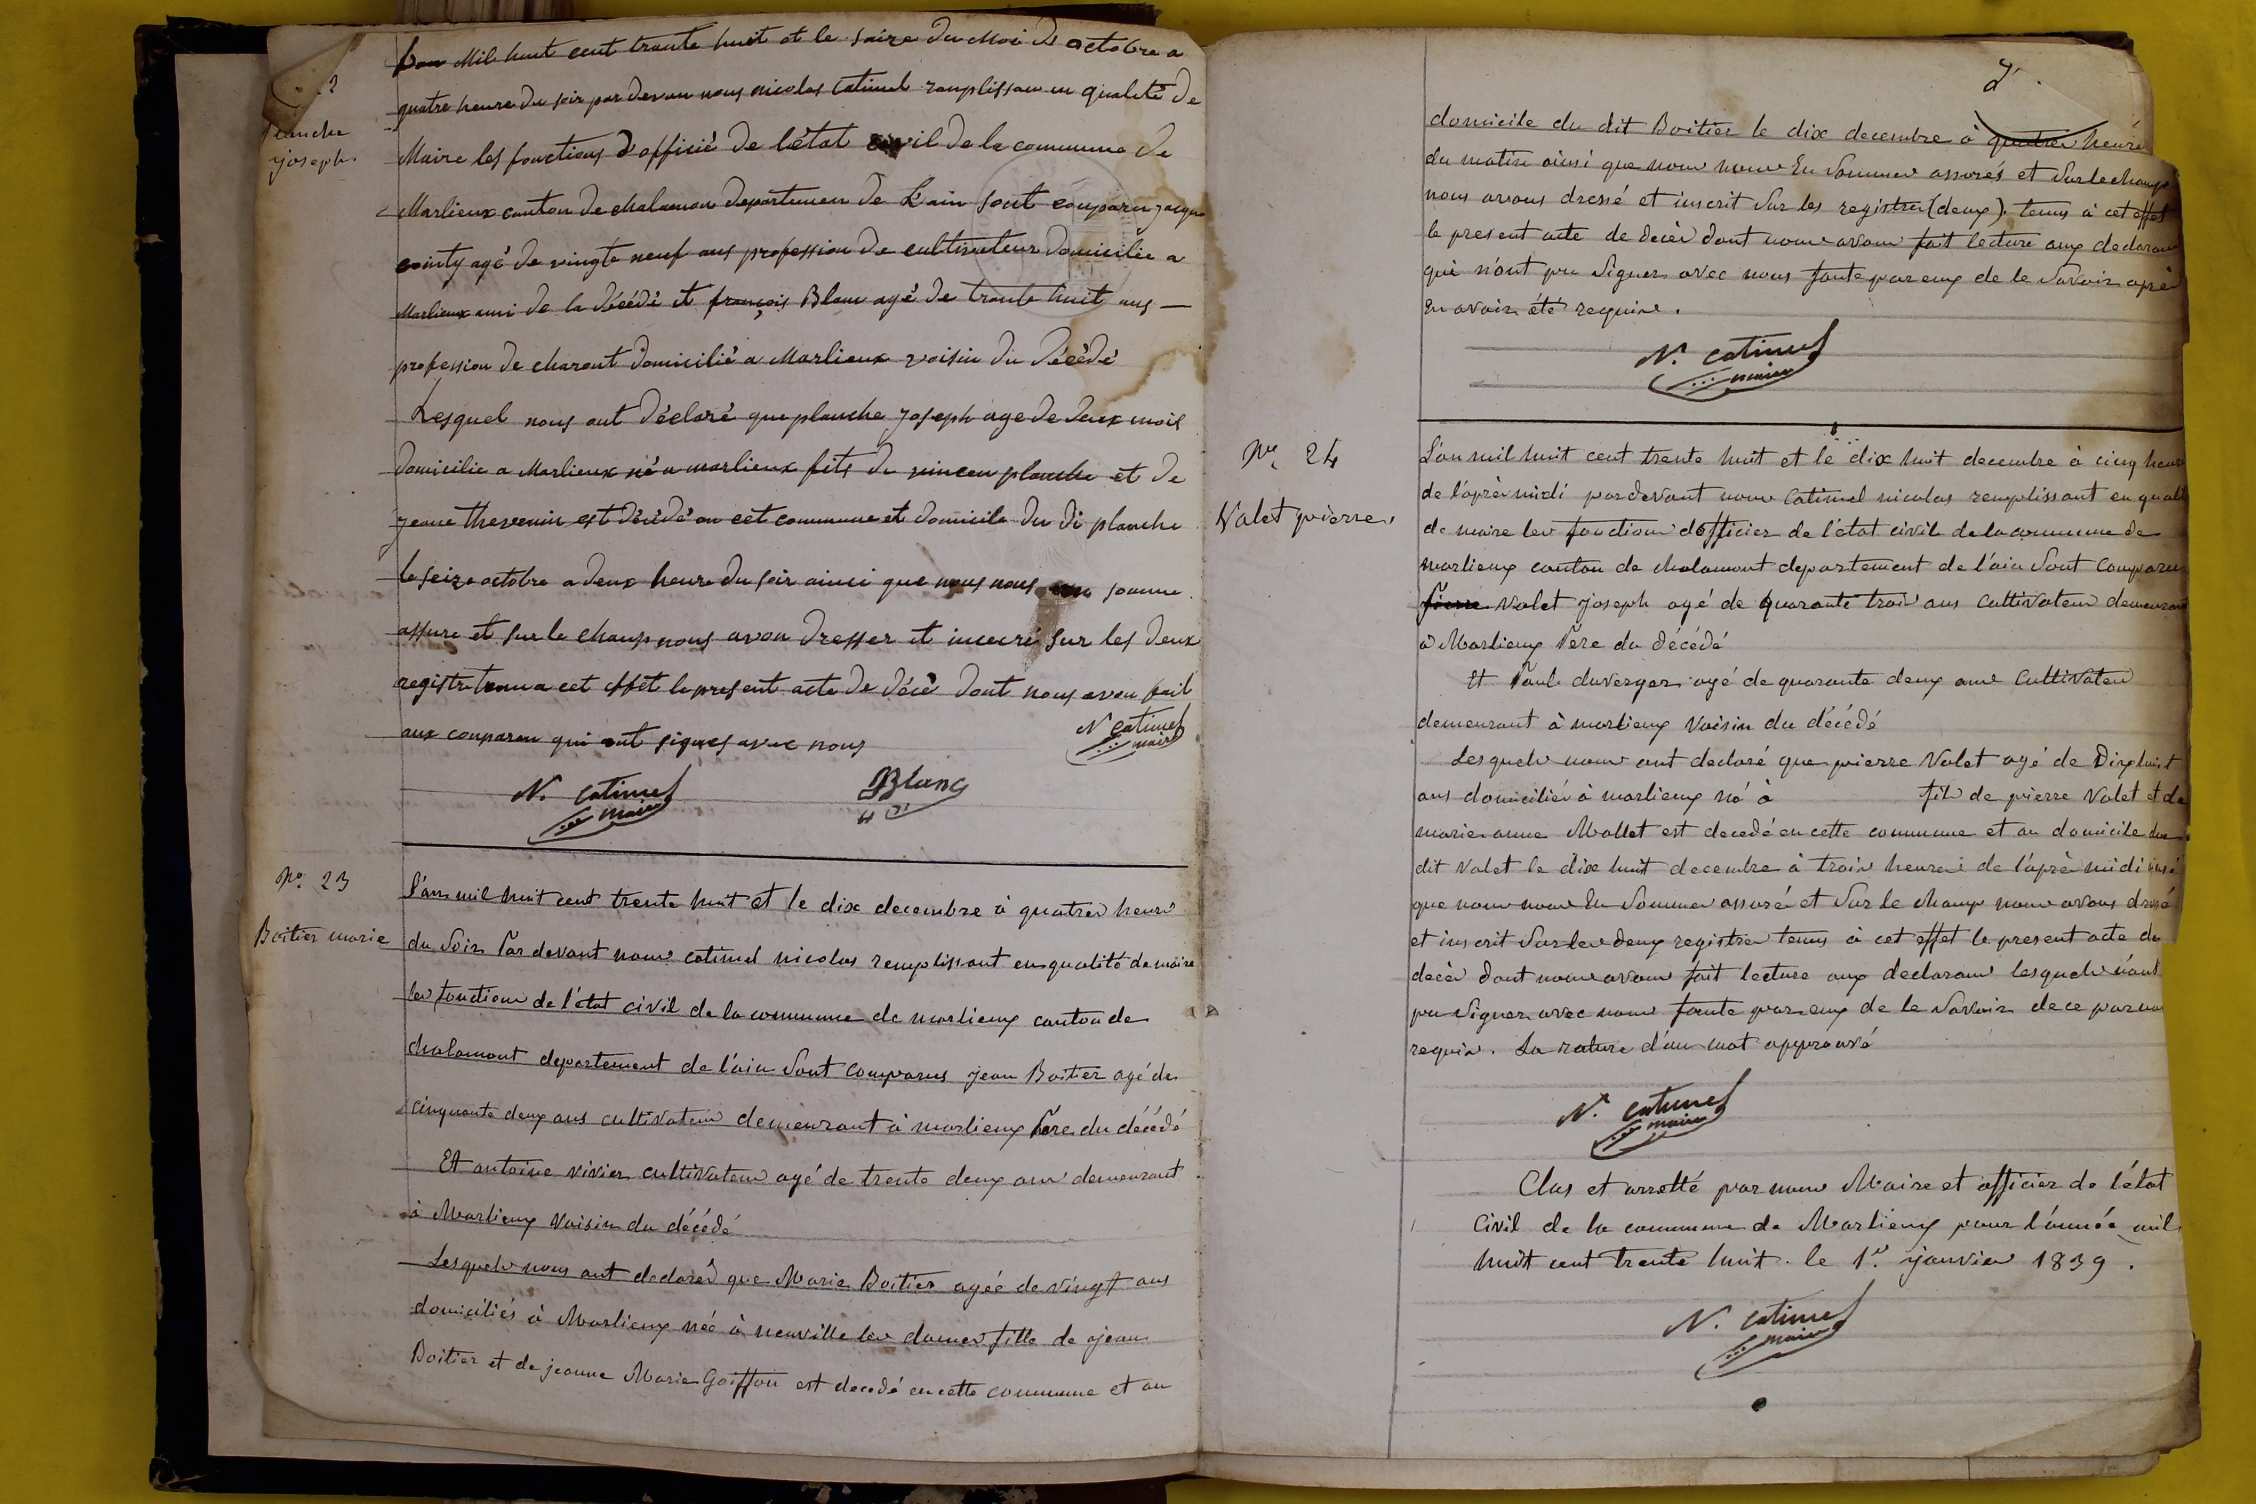 22
planche
joseph.
l'an Mil huit cent trante huit et le saize du Moi de octobre a
quatre heure du soir par devan nous nicolas Catimel ramplissan en qualité de
Maire les fonctions d'officié de l'état civil de la commune de
Marlieux canton de chalamon departemen de L'ain sont conparu jacque
cointy agé de vingte neuf ans profession de cultivateur domicilie a
Marlieux ami de la décédé et françois Blanc agé de trante huit ans —
profession de charont domicilié a Marlieux voisin du décédé
Lesquel nous ont déclaré que planche joseph age de deux mois
domicilie a Marlieux né a marlieux fils de vincen planche et de
jeane thevenin est décédé en cet commune et domicile du di planche
le seize octobre a deux heure du soir ainci que nous nous somme
assure et sur le chanp nous avon dresser et incecré sur les deux
registre tenu a cet effet le present acte de décè dont nous avon fait
aux conparan qui ont signes avec nous
N Catimel
maire
N. Catimel
maire
Blanc
No. 23
Boitier marie
l'an mil huit cent trente huit et le dix decembre à quatres heures
du soir Par devant nous catimel nicolas remplissant en qualité de maire
les fonctions de l'état civil de la commune de marlieux canton de
chalamont departement de l'ain sont comparus jean Boitier agé de
cinquante deux ans cultivateur demeurant à marlieux Père du décédé
Et antoine vivier cultivateur agé de trente deux ans demeurant
à Marlieux voisin du décédé
Lesquels nous ont declarés que Marie Boitier agée de vingt ans
domiciliés à Marlieux née à neuville les dames fille de jean
Boitier et de jeanne Marie Goiffon est decedé en cette commune et au
domicile du dit Boitier le dix decembre à quatres heures
du matin ainsi que nous nous En sommes assurés et sur le champ
nous avons dressé et inscrit sur les registres (deux) tenus à cet effet
le present acte de decès dont nous avons fait lecture aux declarans
qui n'ont pu signer avec nous faute par eux de le savoir après
En avoir été requis.
N. Catimel
maire
No. 24
Valet pierre.
L'an mil huit cent trente huit et le dix huit decembre à cinq heures
de l'après midi pardevant nous Catimel nicolas remplissant en qualité
de maire les fonctions d'officier de l'état civil de la commune de
marlieux canton de chalamont departement de l'ain sont comparus
Pierre Valet joseph agé de quarante trois ans cultivateur demeurant
à Marlieux Père du décédé
Et Paul duverger agé de quarante deux ans cultivateur
demeurant à marlieux voisin du décédé
Lesquels nous ont declaré que pierre Valet agé de Dix huit
ans domicilié à marlieux né à fils de pierre Valet et de
marie anne Mallet est decedé en cette commune et au domicile du
dit Valet le dix huit decembre à trois heures de l'après midi ainsi
que nous nous En sommes assuré et sur le champ nous avons dressé
et inscrit sur les deux registres tenus à cet effet le present acte de
decès dont nous avons fait lecture aux declarans lesquels n'ont
pu signer avec nous faute par eux de le savoir de ce par nous
requis. La rature d'un mot approuvé
N. Catimel
maire
Clos et arretté par nous Maire et officier de l'état
Civil de la commune de Marlieux pour l'année mil
huit cent trente huit. le 1er janvier 1839.
N. Catimel
maire